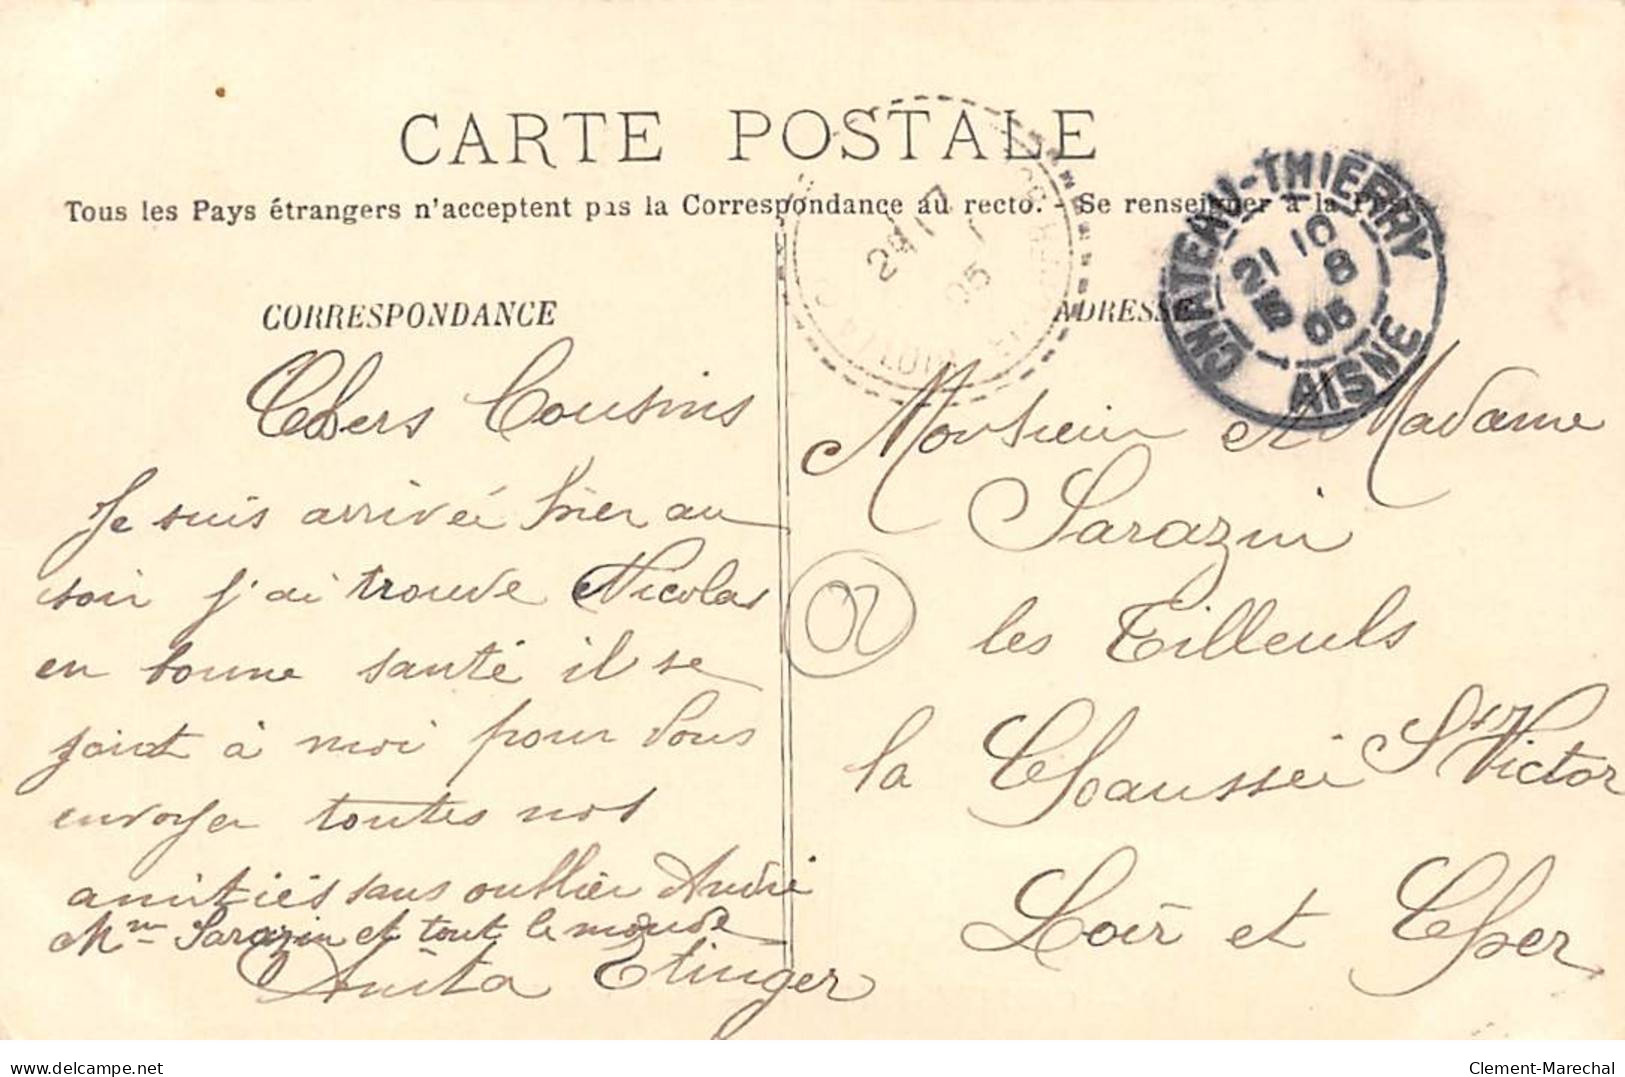 CARTE POSTALE
Tous les Pays étrangers n'acceptent pas la Correspondance au recto. - Se renseigner à la
CORRESPONDANCE
Chers Cousins
Je suis arrivée hier au
soir j'ai trouve Nicolas
en bonne santé il se
joint à moi pour vous
envoyer toutes nos
amitiés sans oublier André
Mme Sarazin et tout le monde
Anita Etinger
ADRESSE
Monsieur et Madame
Sarazin
les Tilleuls
la Chaussée St Victor
Loir et Cher
CHATEAU-THIERRY
21 10
8
05
AISNE
05
02
www.delcampe.net
Clement-Marechal